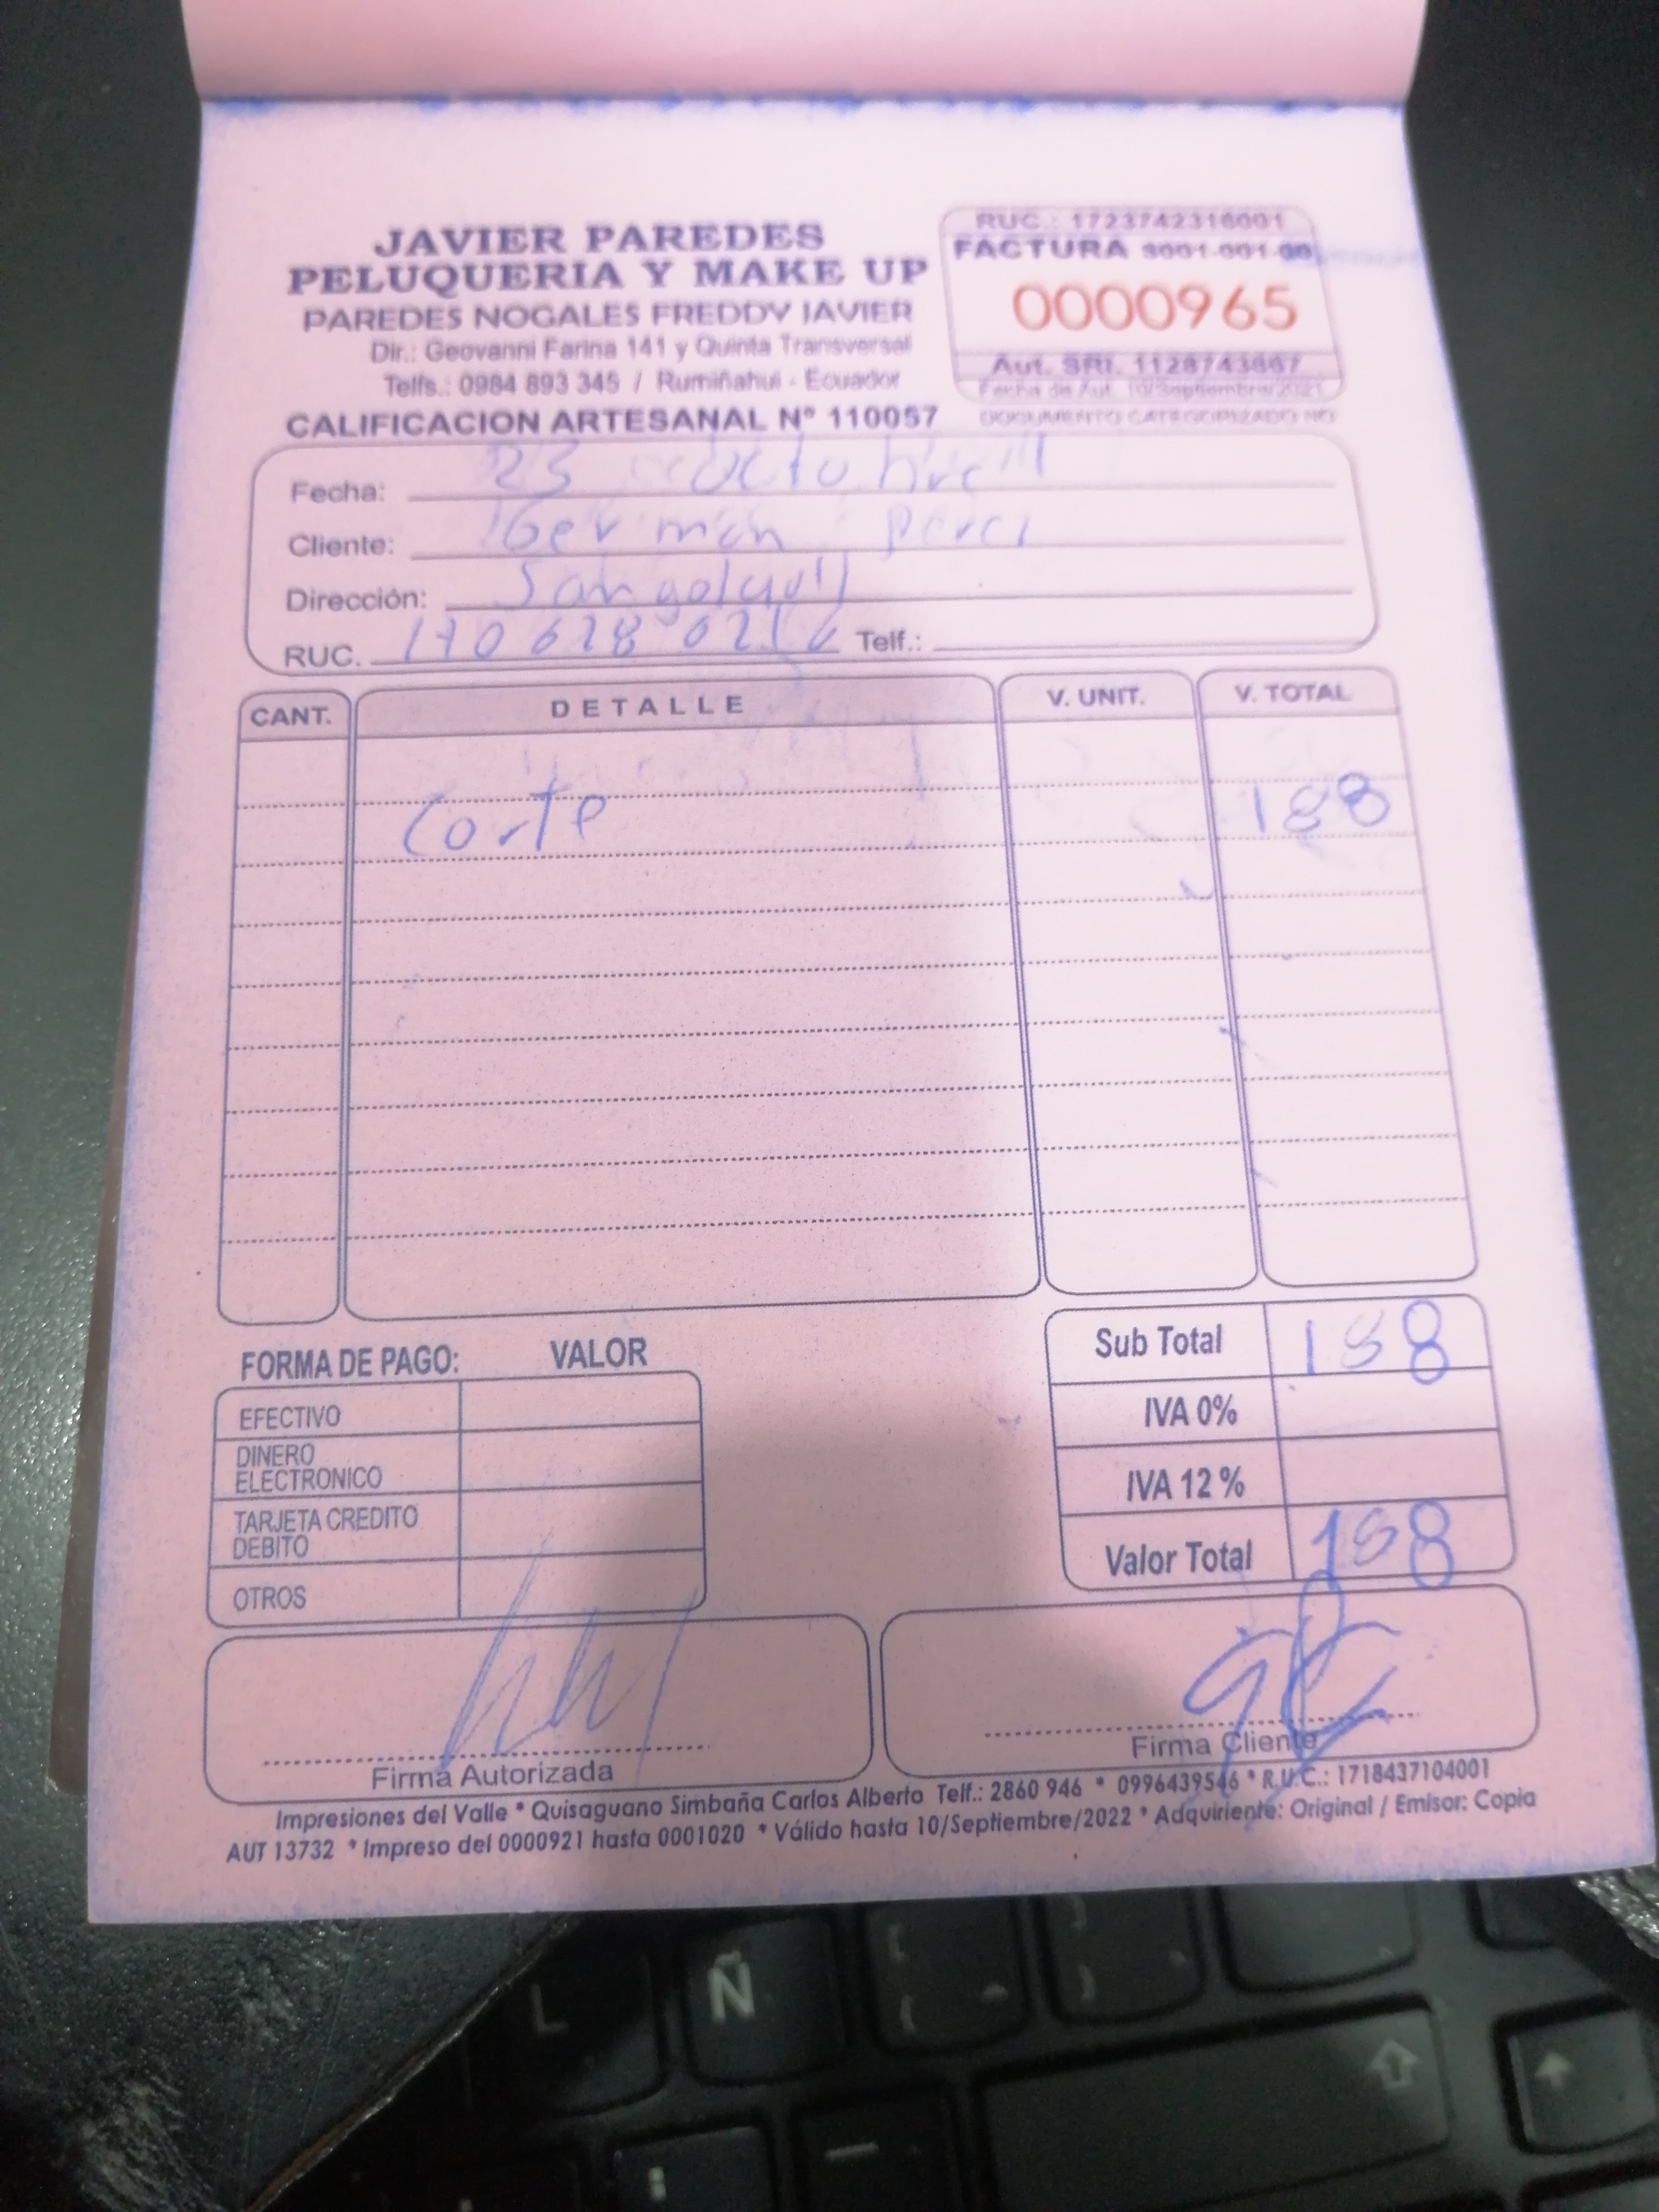 JAVIER PAREDES
PELUQUERIA Y MAKE UP
PAREDES NOGALES FREDDY JAVIER
Dir.: Geovanni Farina 141 y Quinta Transversal
Telfs.: 0984 893 345 / Rumiñahui - Ecuador
CALIFICACION ARTESANAL Nº 110057
RUC.: 1723742316001
FACTURA S001-001-00
0000965
Aut. SRI. 1128743667
Fecha de Aut. 10/Septiembre/2021
DOCUMENTO CATEGORIZADO NO
Fecha: 23 octubre
Cliente: German
Dirección: Sangolqui
RUC. Telf.:
CANT. DETALLE V. UNIT. V. TOTAL
Corte 188
Sub Total 188
IVA 0%
IVA 12 %
Valor Total 188
FORMA DE PAGO: VALOR
EFECTIVO
DINERO
ELECTRONICO
TARJETA CREDITO
DEBITO
OTROS
Firma Autorizada
Firma Cliente
Impresiones del Valle * Quisaguano Simbaña Carlos Alberto Telf.: 2860 946 * 0996439546 * R.U.C.: 1718437104001
AUT 13732 * Impreso del 0000921 hasta 0001020 * Válido hasta 10/Septiembre/2022 * Adquiriente: Original / Emisor: Copia
L
Ñ